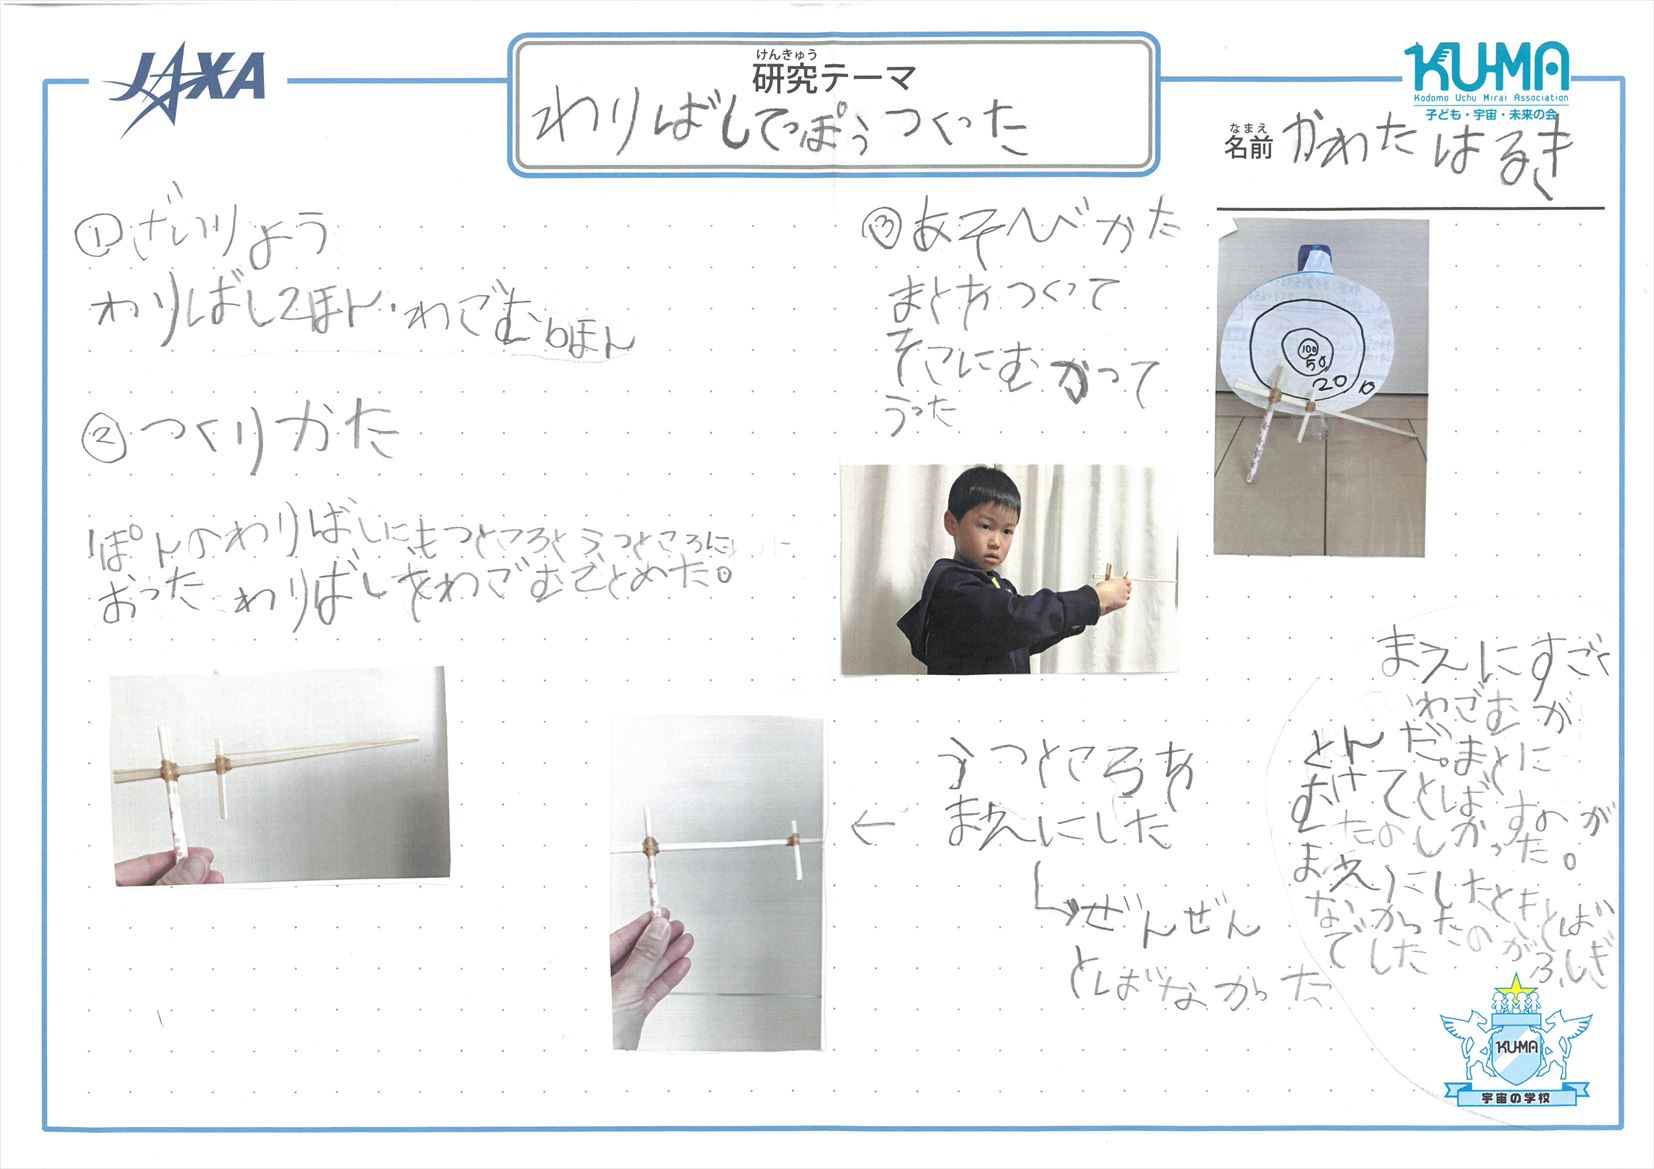 JAXA
けんきゅう
研究テーマ
わりばしてっぽうつくった
KU-MA
Kodomo Uchu Mirai Association
子ども・宇宙・未来の会
なまえ
名前 かわたはるき
①ざいりょう
わりばし2ほん・わごむ6ほん
②つくりかた
1ぽんのわりばしにもつところとうつところに
おったわりばしをわごむでとめた。
③あそびかた
まとをつくって
そこにむかって
うった
100
50
20
10
うつところを
まえにした
←
↳ぜんぜん
とばなかった
まえにすごく
わごむが
とんだ。まとに
むけてとばすのが
たのしかった。
まえにしたときとば
なかったのがふしぎ
でした
KU-MA
宇宙の学校